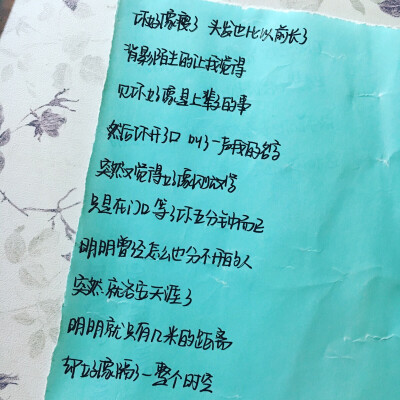 你好像瘦了 头发也比以前长了
背影陌生的让我觉得
见你好像是上辈子的事
然后你开了口 叫了一声我的名字
突然又觉得好像
只是在门口等了你五分钟而已
明明曾经怎么也分不开的人
突然就咨在天涯了
明明就只有几米的距离
却好像隔了一整个时空